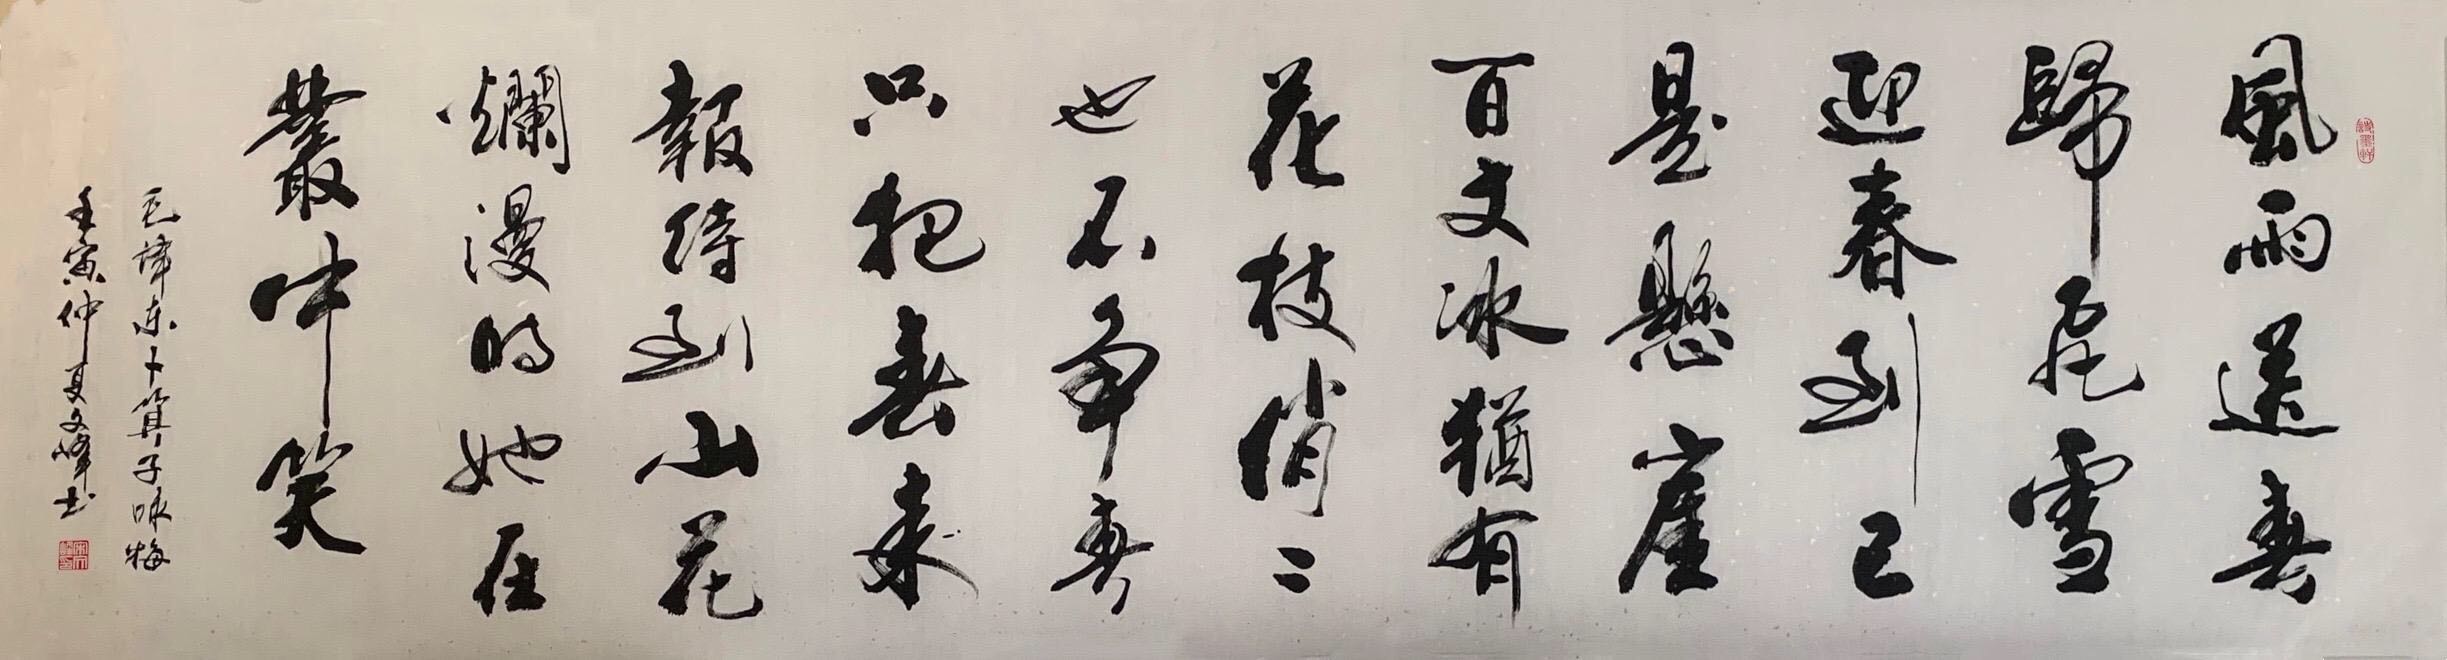 風雨送春
歸飛雪
迎春到已
是懸崖
百丈冰猶有
花枝俏々
也不争春
只把春来
報待到山花
爛漫時她在
叢中笑
毛澤东卜算子咏梅
壬寅仲夏文峰书